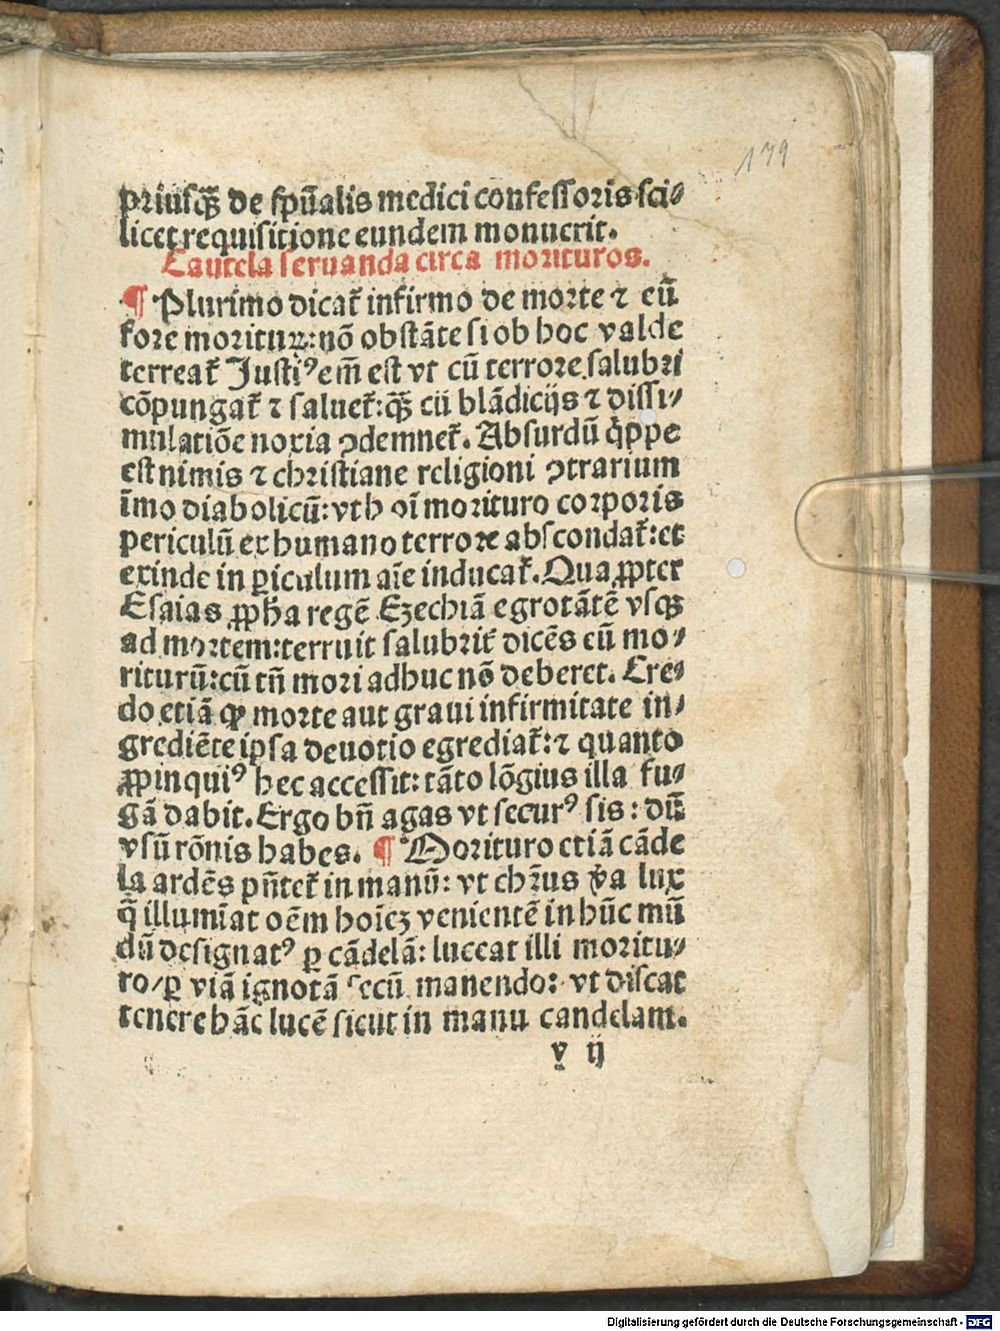 179
priusqꝫ̄ de spūalis medici confessoris sci⸗
licet requisitione eundem monuerit.
Cautela seruanda circa morituros.
¶ Plurimo dicat᷑ infirmo de morte ⁊ eū
fore morituꝝ: nō obstāte si ob hoc valde
terreat᷑ Justiꝰ em̄ est vt cū terrore salubri
cōpungat᷑ ⁊ saluet᷑: qꝫ̄ cū blādicijs ⁊ dissi⸗
mulatiōe noxia ꝯdemnet᷑. Absurdū q̇ppe
est nimis ⁊ christiane religioni ꝯtrarium
īmo diabolicū: vt h oī morituro corporis
periculū ex humano terrore abscondat᷑: et
exinde in ꝑiculum aīe inducat᷑. Qua ꝓpter
Esaias ꝓph̄a regē Ezechiā egrotātē vsqꝫ
ad mortem: terruit salubrit᷑ dicēs eū mo⸗
riturū: cū tn̄ mori adhuc nō deberet. Cre⸗
do etiā ꝙ morte aut graui infirmitate in⸗
grediēte ipsa deuotio egrediat᷑: ⁊ quanto
ꝓpinquiꝰ hec accessit: tāto lōgius illa fu⸗
gā dabit. Ergo bn̄ agas vt securꝰ sis: dū
vsū rōnis habes. ¶ Morituro etiā cāde
la ardēs pn̄tet᷑ in manū: vt chr̄us v̄a lux
q̄ illumīat oēm hoīeꝫ venientē in hūc mū
dū designatꝰ ꝑ cādelā: luceat illi moritu⸗
ro/ꝑ viā ignotā secū manendo: vt discat
tenere hāc lucē sicut in manu candelam.
v ij
Digitalisierung gefördert durch die Deutsche Forschungsgemeinschaft - DFG